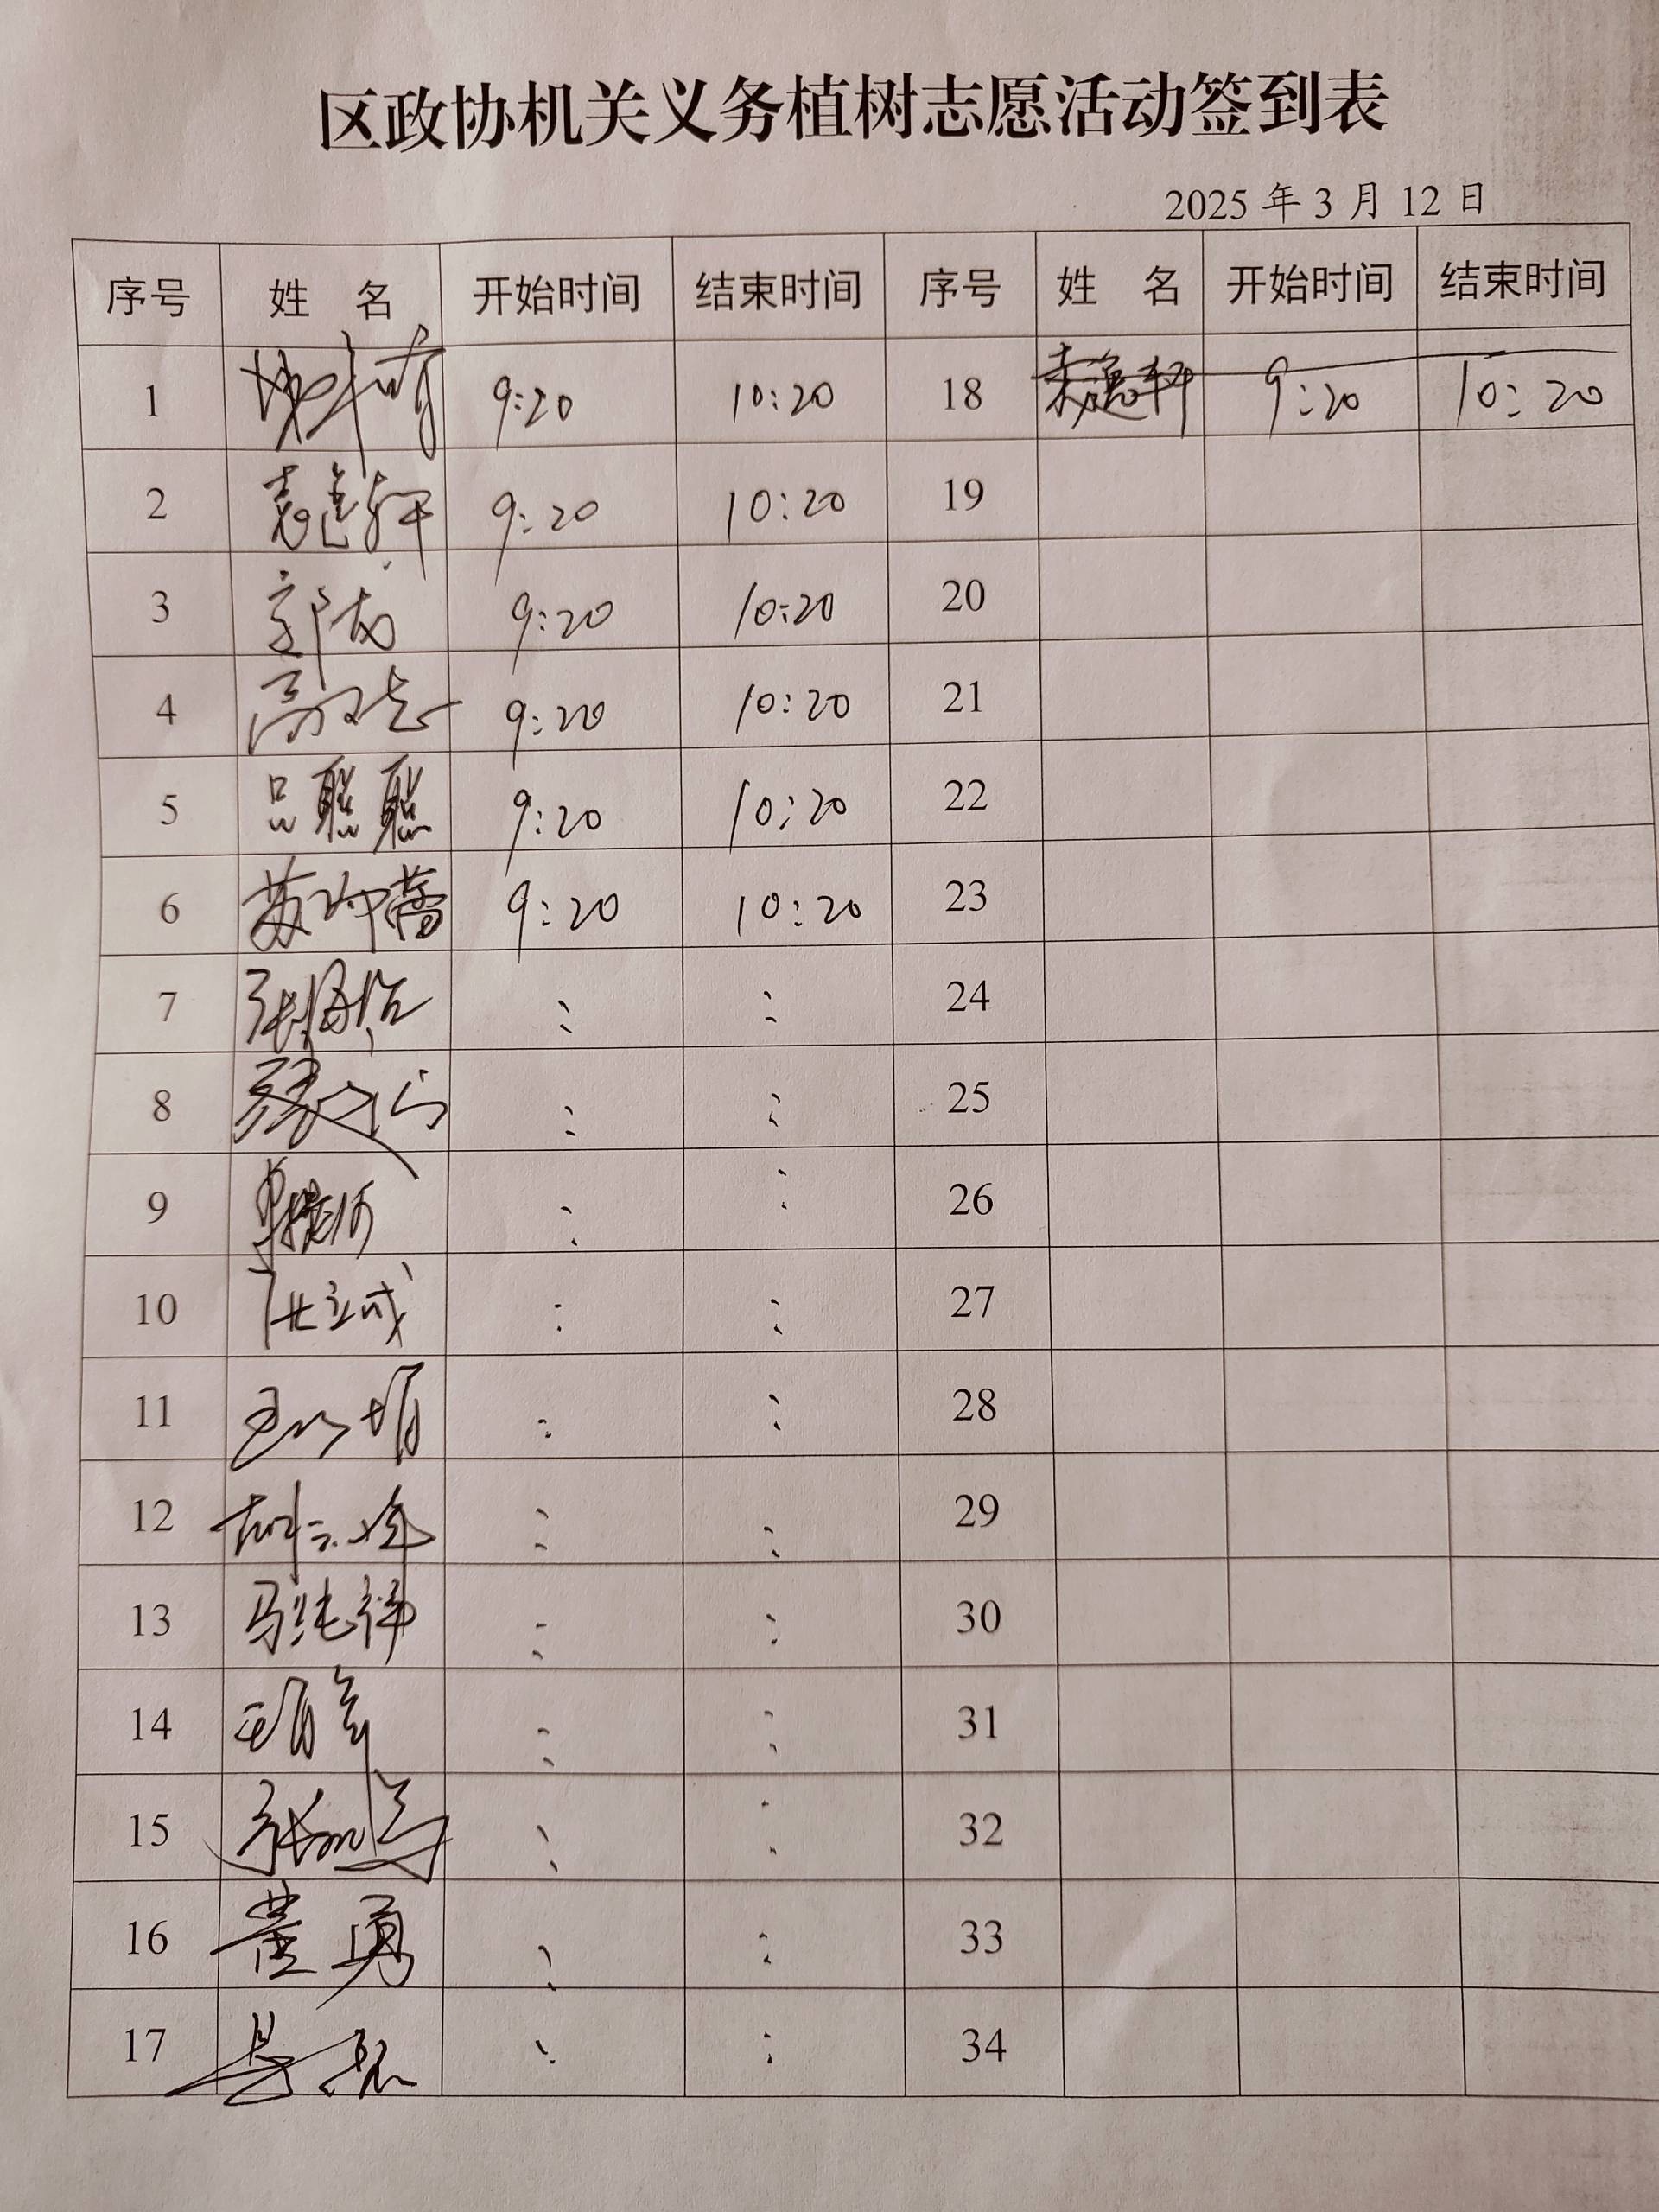 区政协机关义务植树志愿活动签到表
2025 年 3 月 12 日
序号 姓 名 开始时间 结束时间 序号 姓 名 开始时间 结束时间
1 9:20 10:20 18 袁逸轩 9:20 10:20
2 袁逸轩 9:20 10:20 19
3 9:20 10:20 20
4 9:20 10:20 21
5 吕聪聪 9:20 10:20 22
6 苏 蕾 9:20 10:20 23
7 : : 24
8 : : 25
9 : : 26
10 张立成 : : 27
11 : : 28
12 : : 29
13 马纯祥 : : 30
14 : : 31
15 : : 32
16 董勇 : : 33
17 : : 34